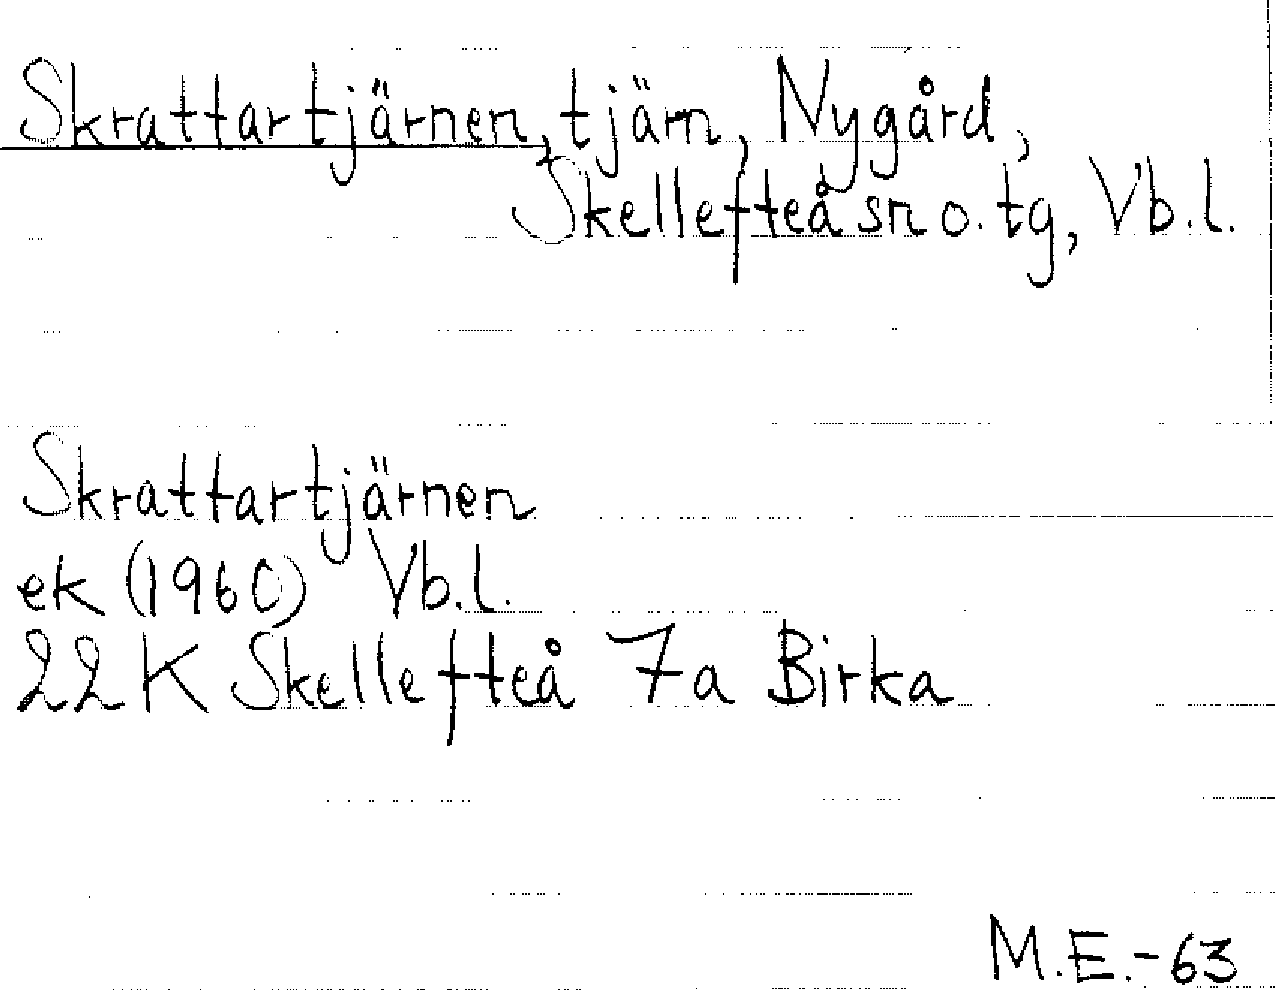 Skrattartjärnen, tjärn, Nygård,
Skellefteå sn o. tg, Vb.l.
Skrattartjärnen
ek (1960) Vb.l.
22K Skellefteå 7a Birka
M.E.-63